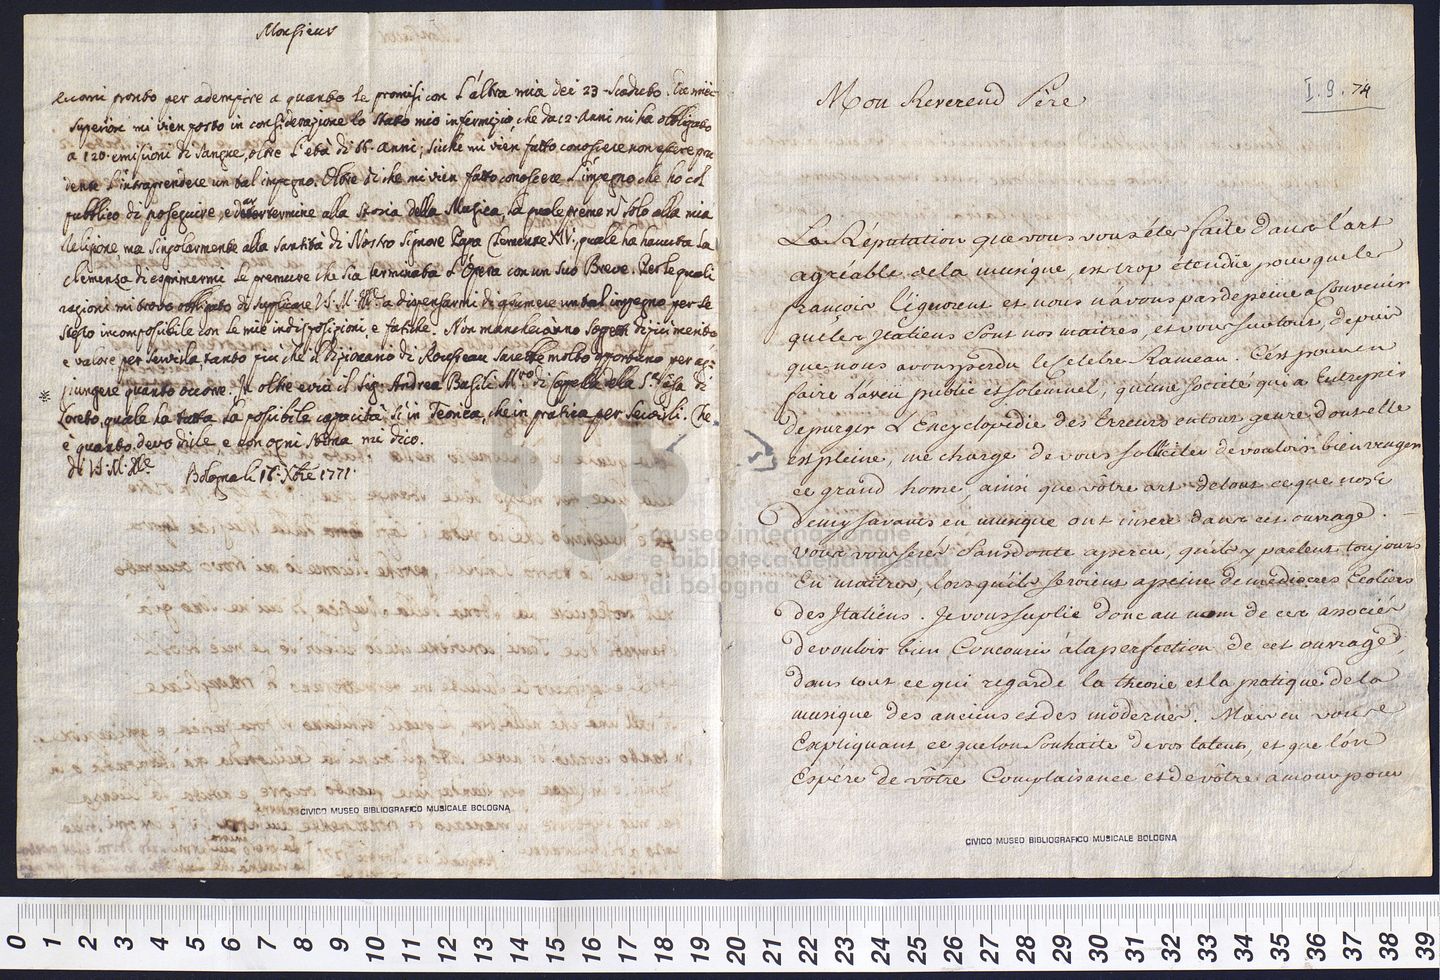 Monsieur
Eccomi pronto per adempire a quanto le promisi con l'altra mia dei 23 Scaduto. Da miei
Superiori mi vien posto in considerazione lo stato mio infermizio, che da 12 Anni mi ha obbligato
a 120 emissioni di Sangue, oltre l'età di 66 Anni, sicche mi vien fatto conoscere non essere pru
dente l'intraprendere un tal impegno. Oltre di che mi vien fatto conoscere l'impegno che ho col
pubblico di proseguire, e dar termine alla Storia della Musica, la quale preme non solo alla mia
Religione ma singolarmente alla Santità di Nostro Signore Papa Clemente XIV, quale ha havuta la
clemenza di esprimermi le premure che sia terminata l'Opera con un suo Breve. Per le quali
ragioni mi trovo obbligato di supplicare V.S. Ill. a dispensarmi di assumere un tal impegno per se
stesso incompossibile con le mie indisposizioni e fatiche. Non mancheranno soggetti di più merito
e valore per servirla, tanto più che il Dizionario di Rousseau sarebbe molto opportuno per ag
jiungere quanto occorre. In oltre evvi il Sig. Andrea Basili Mro di Cappella della Sta Casa di
Loreto, quale ha tutta la possibile capacità sì in Teorica, che in pratica per servirli. Che
è quanto devo dirle, e con ogni stima mi dico.
di V.S. Ill.
Bologna li 16 Xbre 1771
I. 9. 74
Mon Reverend Père
La Réputation que vous vous étes faite dans l'art
agréable de la musique, est trop étendüe pour que les
francois l'ignorent et nous n'avons pas de peine a Convenir
que les Italiens Sont nos maitres, et vous surtout, depuis
que nous avons perdu le Celebre Rameau. C'est pour en
faire l'aveu public et Solemnel, qu'une Societé qui a Entrepris
de purger l'Encyclopédie des Erreurs en tout genre dont elle
est pleine, me charge de vous solliciter de vouloir bien venger
ce grand home, ainsi que vôtre art de tout ce que nos
demy savants en musique ont inseré dans cet ouvrage.
vous vous serés Sans doute aperçu, qu'ils y parlent toujours
En maitres, lorsqu'ils seroient a peine de mediocres Ecoliers
des Italiens. Je vous suplie donc au nom de ces associés
de vouloir bien Concourir à la perfection de cet ouvrage,
dans tout ce qui regarde la théorie et la pratique de la
musique des anciens et des modernes. Mais en vous
Expliquant ce que l'on Souhaite de vos talents, et que l'on
Espère de vôtre Complaisance et de vôtre amour pour
museo internazionale
e biblioteca della musica
di bologna
CIVICO MUSEO BIBLIOGRAFICO MUSICALE BOLOGNA
CIVICO MUSEO BIBLIOGRAFICO MUSICALE BOLOGNA
0 1 2 3 4 5 6 7 8 9 10 11 12 13 14 15 16 17 18 19 20 21 22 23 24 25 26 27 28 29 30 31 32 33 34 35 36 37 38 39